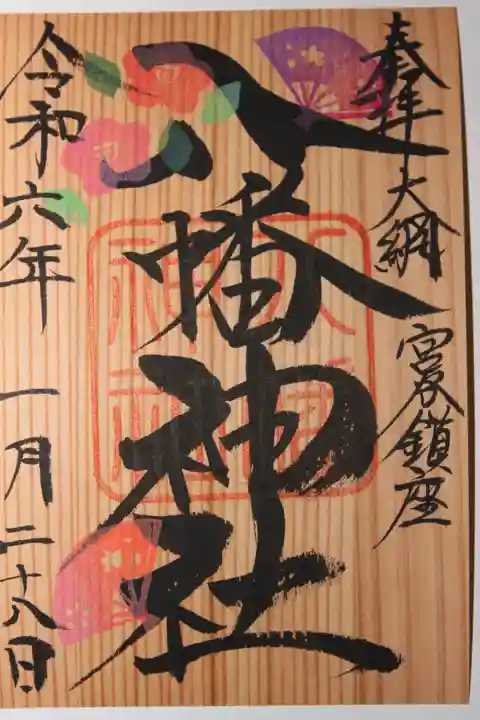 奉拝 大網 宮谷鎮座
八幡神社
八幡
神社
令和六年 一月二十八日